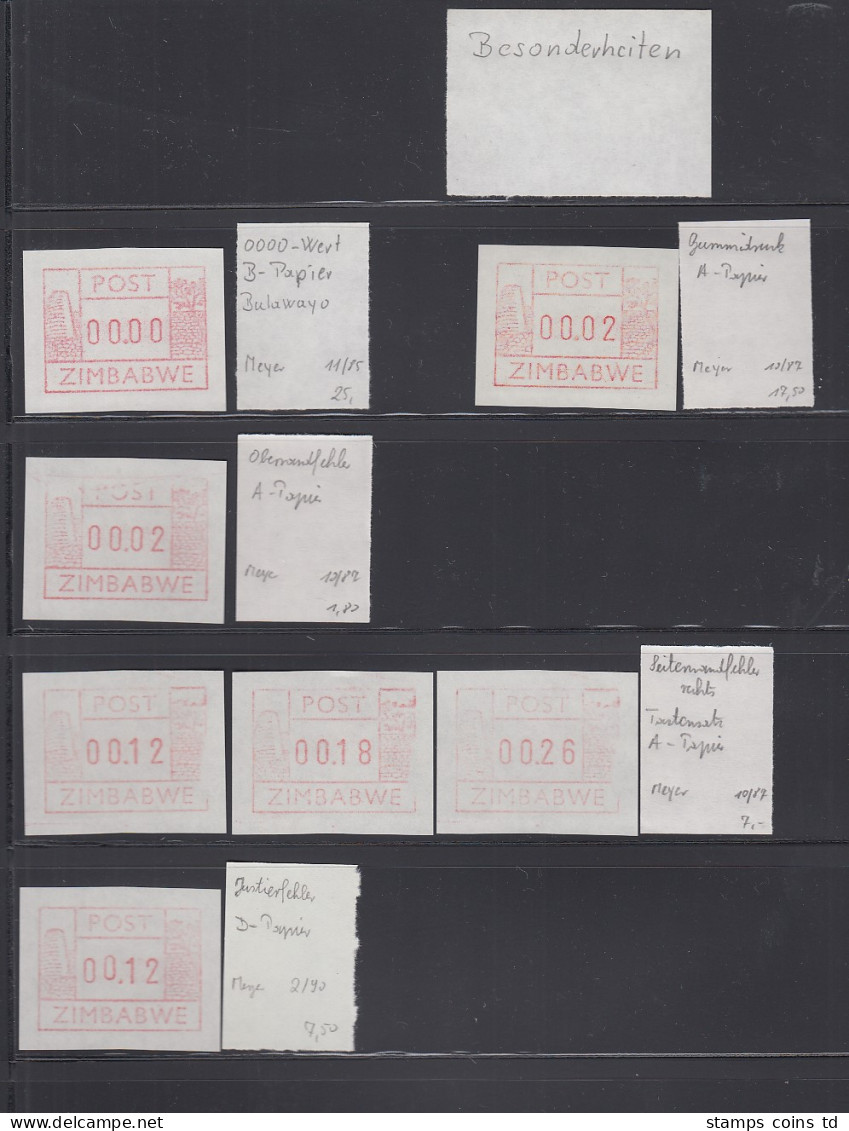 Besonderheiten
POST
00.00
ZIMBABWE
0000-Wert
B-Papier
Bulawayo
Meyer 11/85
25,
POST
00.02
ZIMBABWE
Gummidruck
A-Papier
Meyer 10/87
17,50
POST
00.02
ZIMBABWE
Oberrandfehler
A-Papier
Meyer 10/87
1,80
POST
00.12
ZIMBABWE
POST
00.18
ZIMBABWE
POST
00.26
ZIMBABWE
Seitenrandfehler
rechts
Tastensatz
A-Papier
Meyer 10/87
7,-
POST
00.12
ZIMBABWE
Justierfehler
D-Papier
Meyer 2/90
7,50
stamps coins td